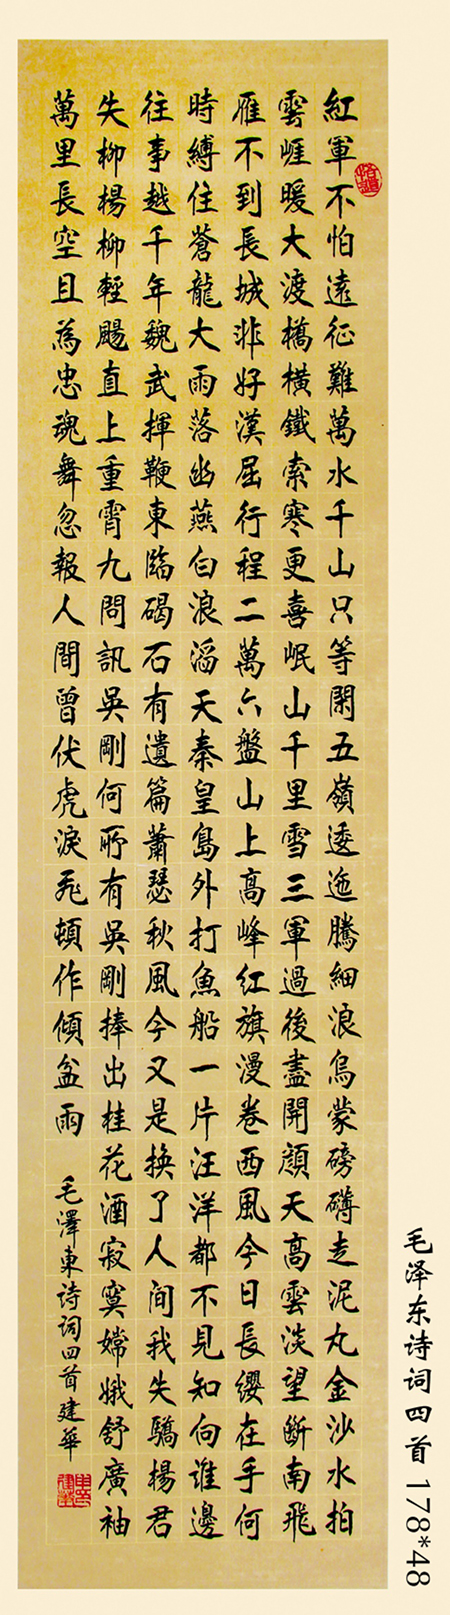 紅軍不怕遠征難萬水千山只等閑五嶺逶迤騰細浪烏蒙磅礴走泥丸金沙水拍
雲崕暖大渡橋橫鐵索寒更喜岷山千里雪三軍過後盡開顏天高雲淡望斷南飛
雁不到長城非好漢屈行程二萬六盤山上高峰紅旗漫卷西風今日長纓在手何
時縛住蒼龍大雨落幽燕白浪滔天秦皇島外打魚船一片汪洋都不見知向誰邊
往事越千年魏武揮鞭東臨碣石有遺篇蕭瑟秋風今又是換了人间我失驕楊君
失柳楊柳輕颺直上重霄九問訊吳剛何所有吳剛捧出桂花酒寂寞嫦娥舒廣袖
萬里長空且為忠魂舞忽報人間曾伏虎淚飛頓作傾盆雨
毛澤東诗词四首建華
毛泽东诗词四首 178*48